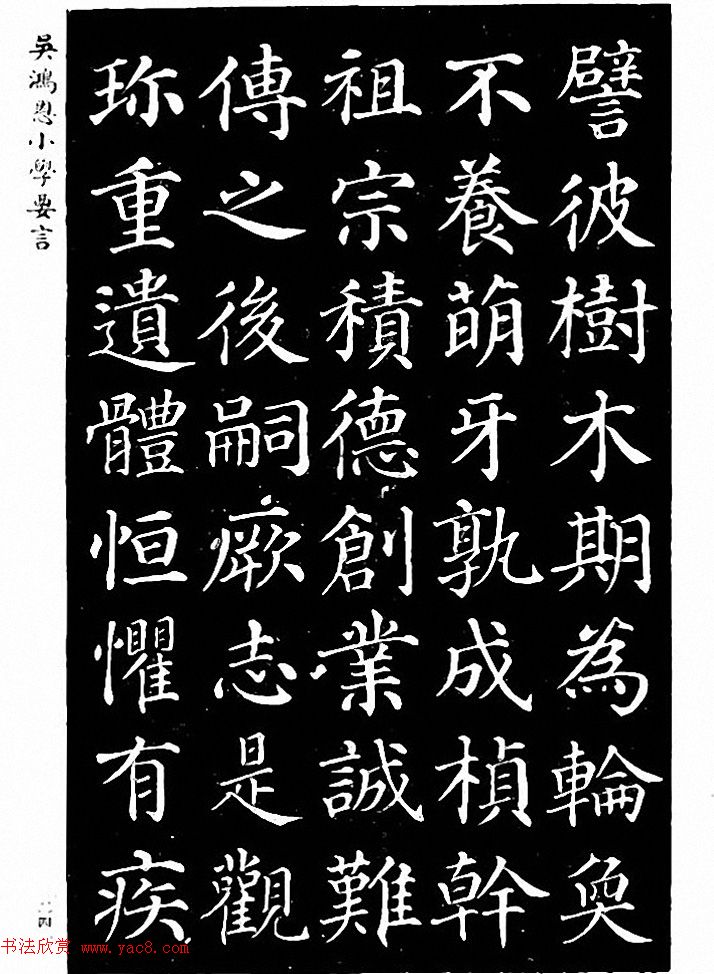 譬彼樹木期為輪奐
不養萌牙孰成楨幹
祖宗積德創業誠難
傳之後嗣厥志是觀
珎重遺體恒懼有疾
吳鴻恩小學要言
二四
书法欣赏 www.yac8.com